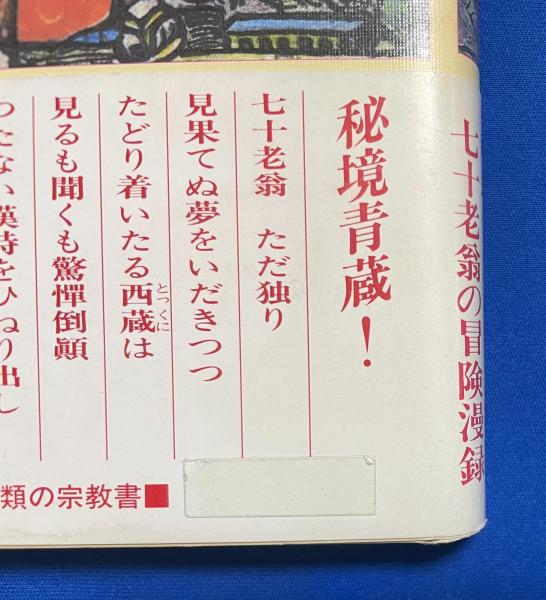 七十老翁の冒険漫録
秘境青蔵！
七十老翁　ただ独り
見果てぬ夢をいだきつつ
たどり着いたる西蔵は
とつくに
見るも聞くも驚憚倒顛
つたない漢詩をひねり出し
類の宗教書■